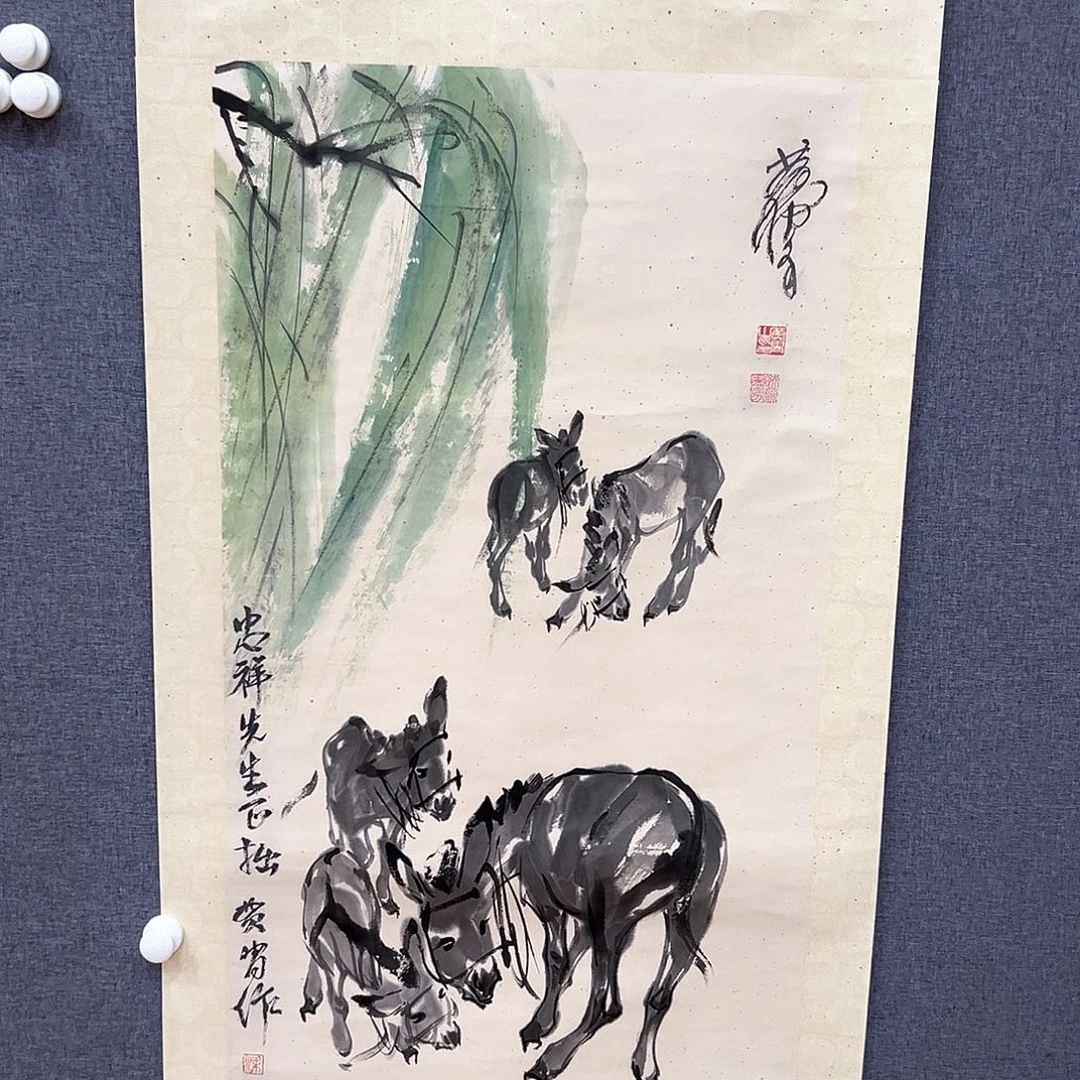 黄胄
忠祥先生正拙 黄胄作